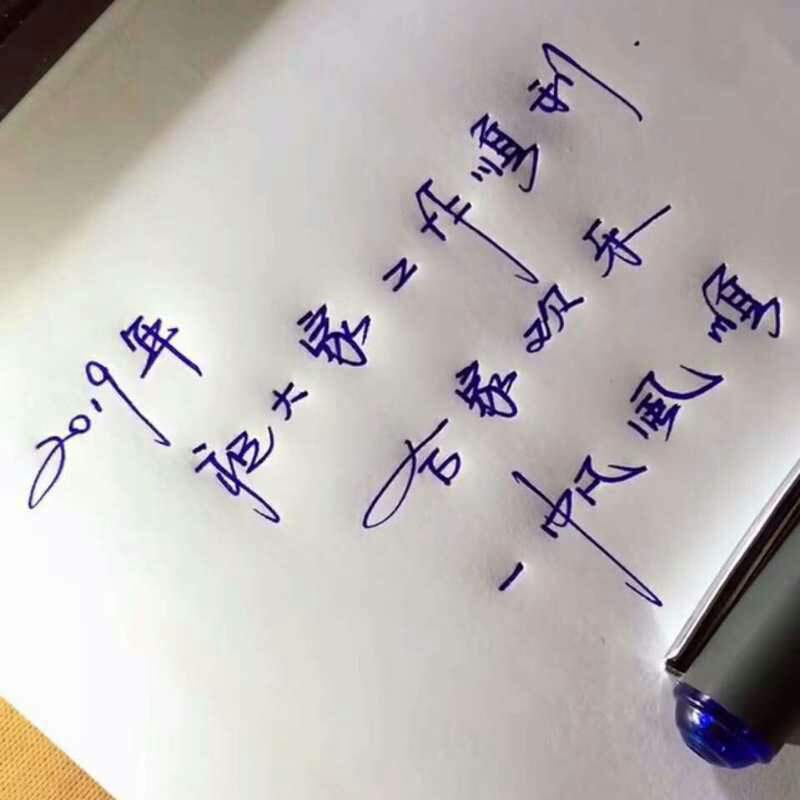 2019年
祝大家工作順利
合家欢乐
一帆風順